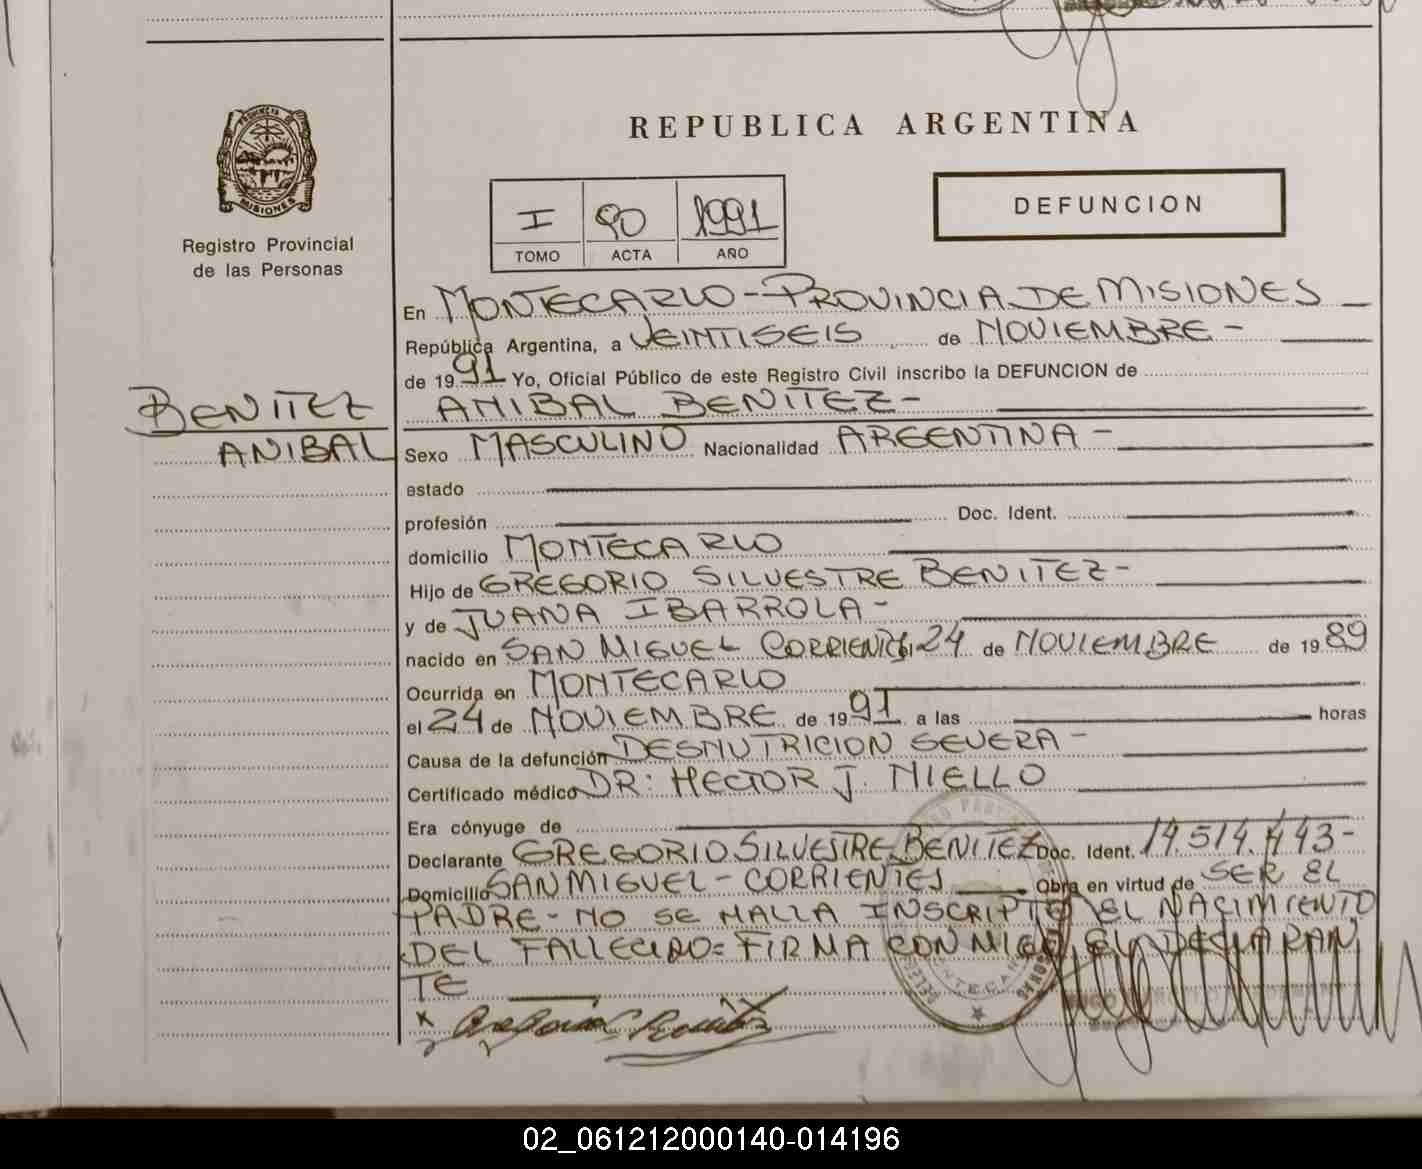 PROVINCIA DE
MISIONES
Registro Provincial
de las Personas
REPUBLICA ARGENTINA
I 90 1991
TOMO ACTA AÑO
DEFUNCION
En MONTECARLO - PROVINCIA DE MISIONES
República Argentina, a VEINTISEIS de NOVIEMBRE -
de 1991 Yo, Oficial Público de este Registro Civil inscribo la DEFUNCION de
BENITEZ
ANIBAL
ANIBAL BENITEZ -
Sexo MASCULINO Nacionalidad ARGENTINA -
estado
profesión Doc. Ident.
domicilio MONTECARLO
Hijo de GREGORIO SILVESTRE BENITEZ -
y de JUANA IBARROLA -
nacido en SAN MIGUEL CORRIENTES, 24 de NOVIEMBRE de 1989
Ocurrida en MONTECARLO
el 24 de NOVIEMBRE de 1991 a las horas
Causa de la defunción DESNUTRICION SEVERA -
Certificado médico DR: HECTOR J. NIELLO
Era cónyuge de
Declarante GREGORIO SILVESTRE BENITEZ Doc. Ident. 14.514.443 -
Domicilio SAN MIGUEL - CORRIENTES Obra en virtud de SER EL
PADRE - NO SE HALLA INSCRIPTO EL NACIMIENTO
DEL FALLECIDO = FIRMA CONMIGO EL DECLARAN
TE
02_061212000140-014196